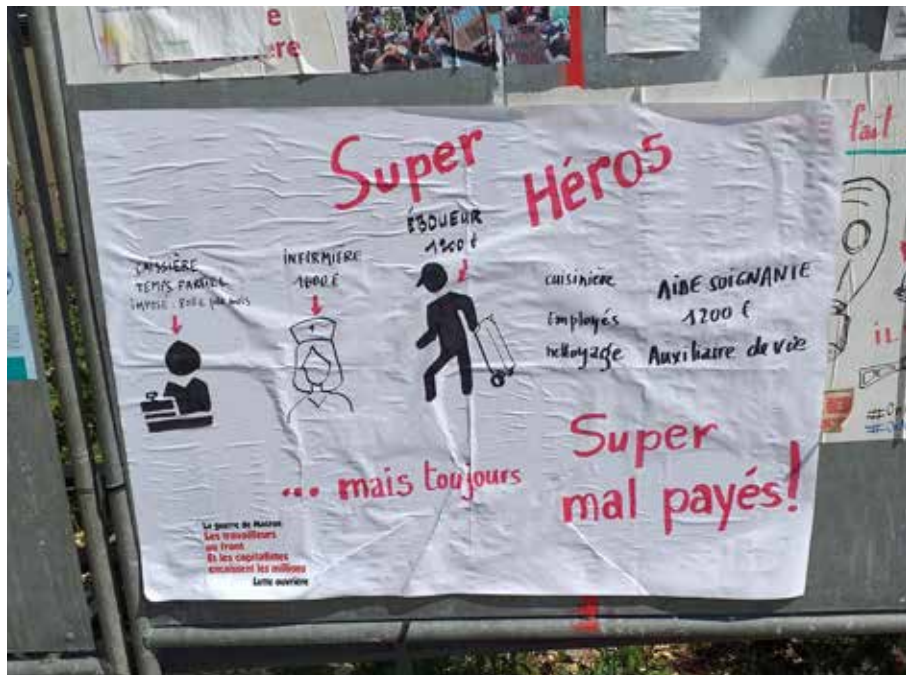 e
ère
Super
Héros
fait
CAISSIÈRE
TEMPS PARTIEL
IMPOSÉ : 800€ par mois
INFIRMIÈRE
1600 €
ÉBOUEUR
cuisinière
Employés
nettoyage
AIDE SOIGNANTE
1200 €
Auxiliaire de vie
IL
... mais toujours
Super
mal payés!
La guerre de Macron
Les travailleurs
au front
Et les capitalistes
encaissent les millions
Lutte ouvrière